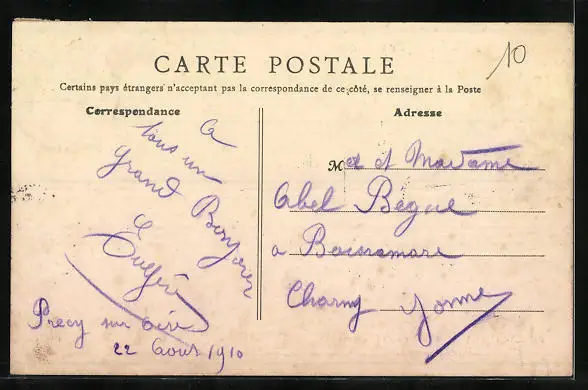 10
CARTE POSTALE
Certains pays étrangers n'acceptant pas la correspondance de ce côté, se renseigner à la Poste
Correspondance
Adresse
a
tous un
grand Bonjour
Precy sur oise
22 Aout 1910
M et et Madame
Abel Begue
a
Charny Yonne